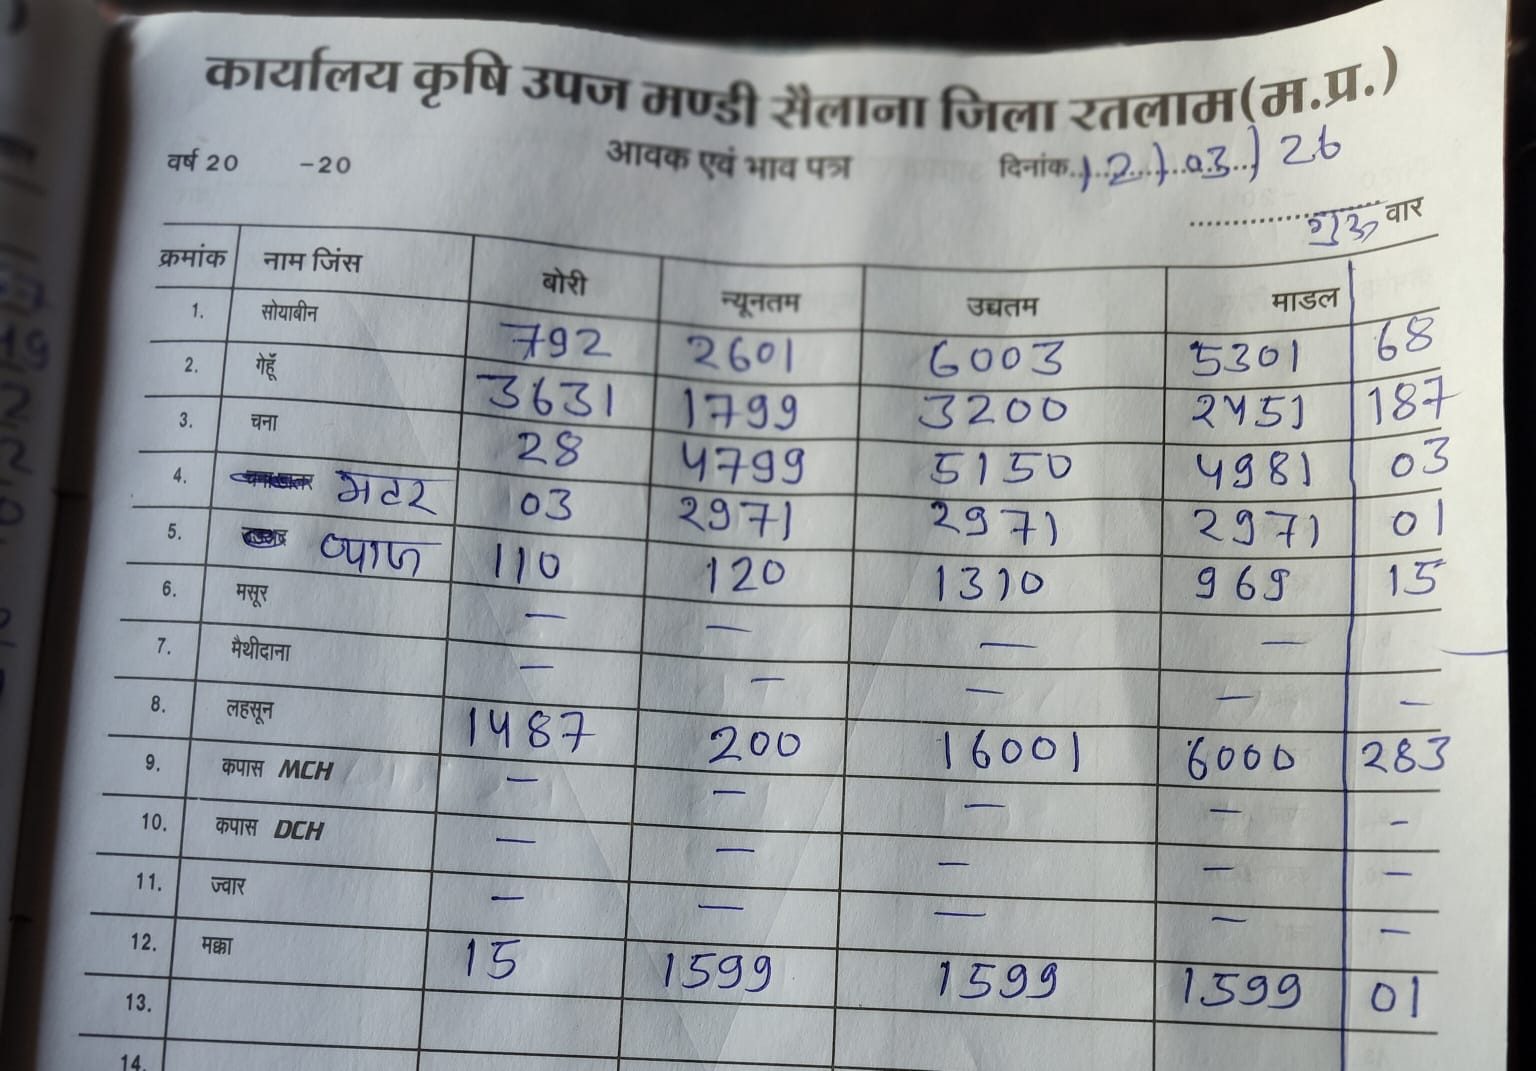 कार्यालय कृषि उपज मण्डी सैलाना जिला रतलाम(म.प्र.)
वर्ष 20 -20 आवक एवं भाव पत्र दिनांक 12/03/26
गुरू वार
क्रमांक नाम जिंस बोरी न्यूनतम उच्चतम माडल
1. सोयाबीन 792 2601 6003 5301 68
2. गेहूँ 3631 1799 3200 2451 187
3. चना 28 4799 5150 4981 03
4. मटर 03 2971 2971 2971 01
5. प्याज 110 120 1310 969 15
6. मसूर — — — —
7. मैथीदाना — — — — —
8. लहसून 1487 200 16001 6000 283
9. कपास MCH — — — — —
10. कपास DCH — — — — —
11. ज्वार — — — — —
12. मक्का 15 1599 1599 1599 01
13.
14.